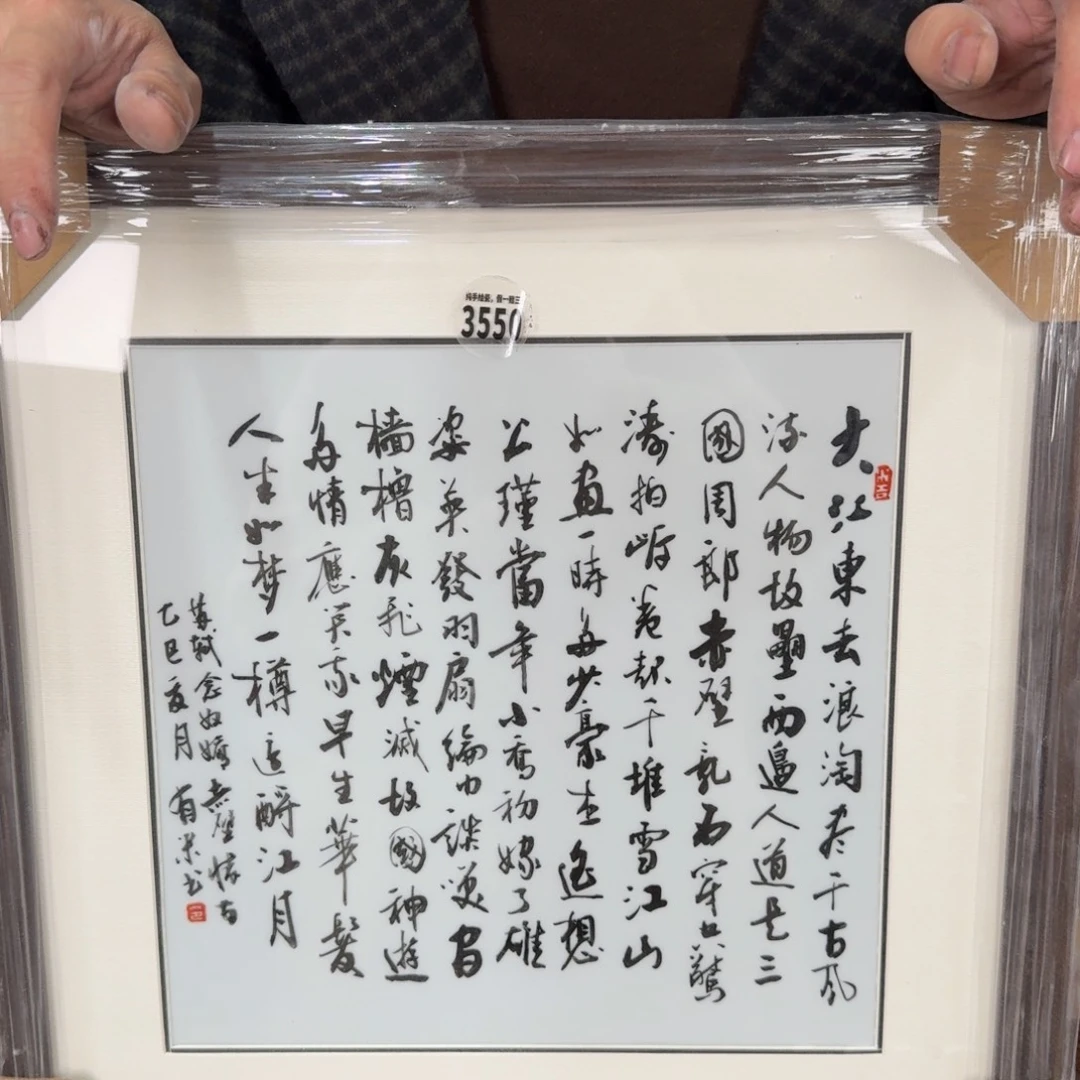 纯手绘瓷，假一赔三
3550
大江東去浪淘尽千古风
流人物故壘西邊人道是三
國周郎赤壁乱石穿空驚
濤拍岸卷起千堆雪江山
如畫一時多少豪杰遙想
公瑾當年小喬初嫁了雄
姿英發羽扇綸巾談笑間
檣櫓灰飛煙滅故國神遊
多情應笑我早生華髮
人生如梦一樽還酹江月
蘇軾念奴嬌赤壁懷古
乙巳夏月有荣书